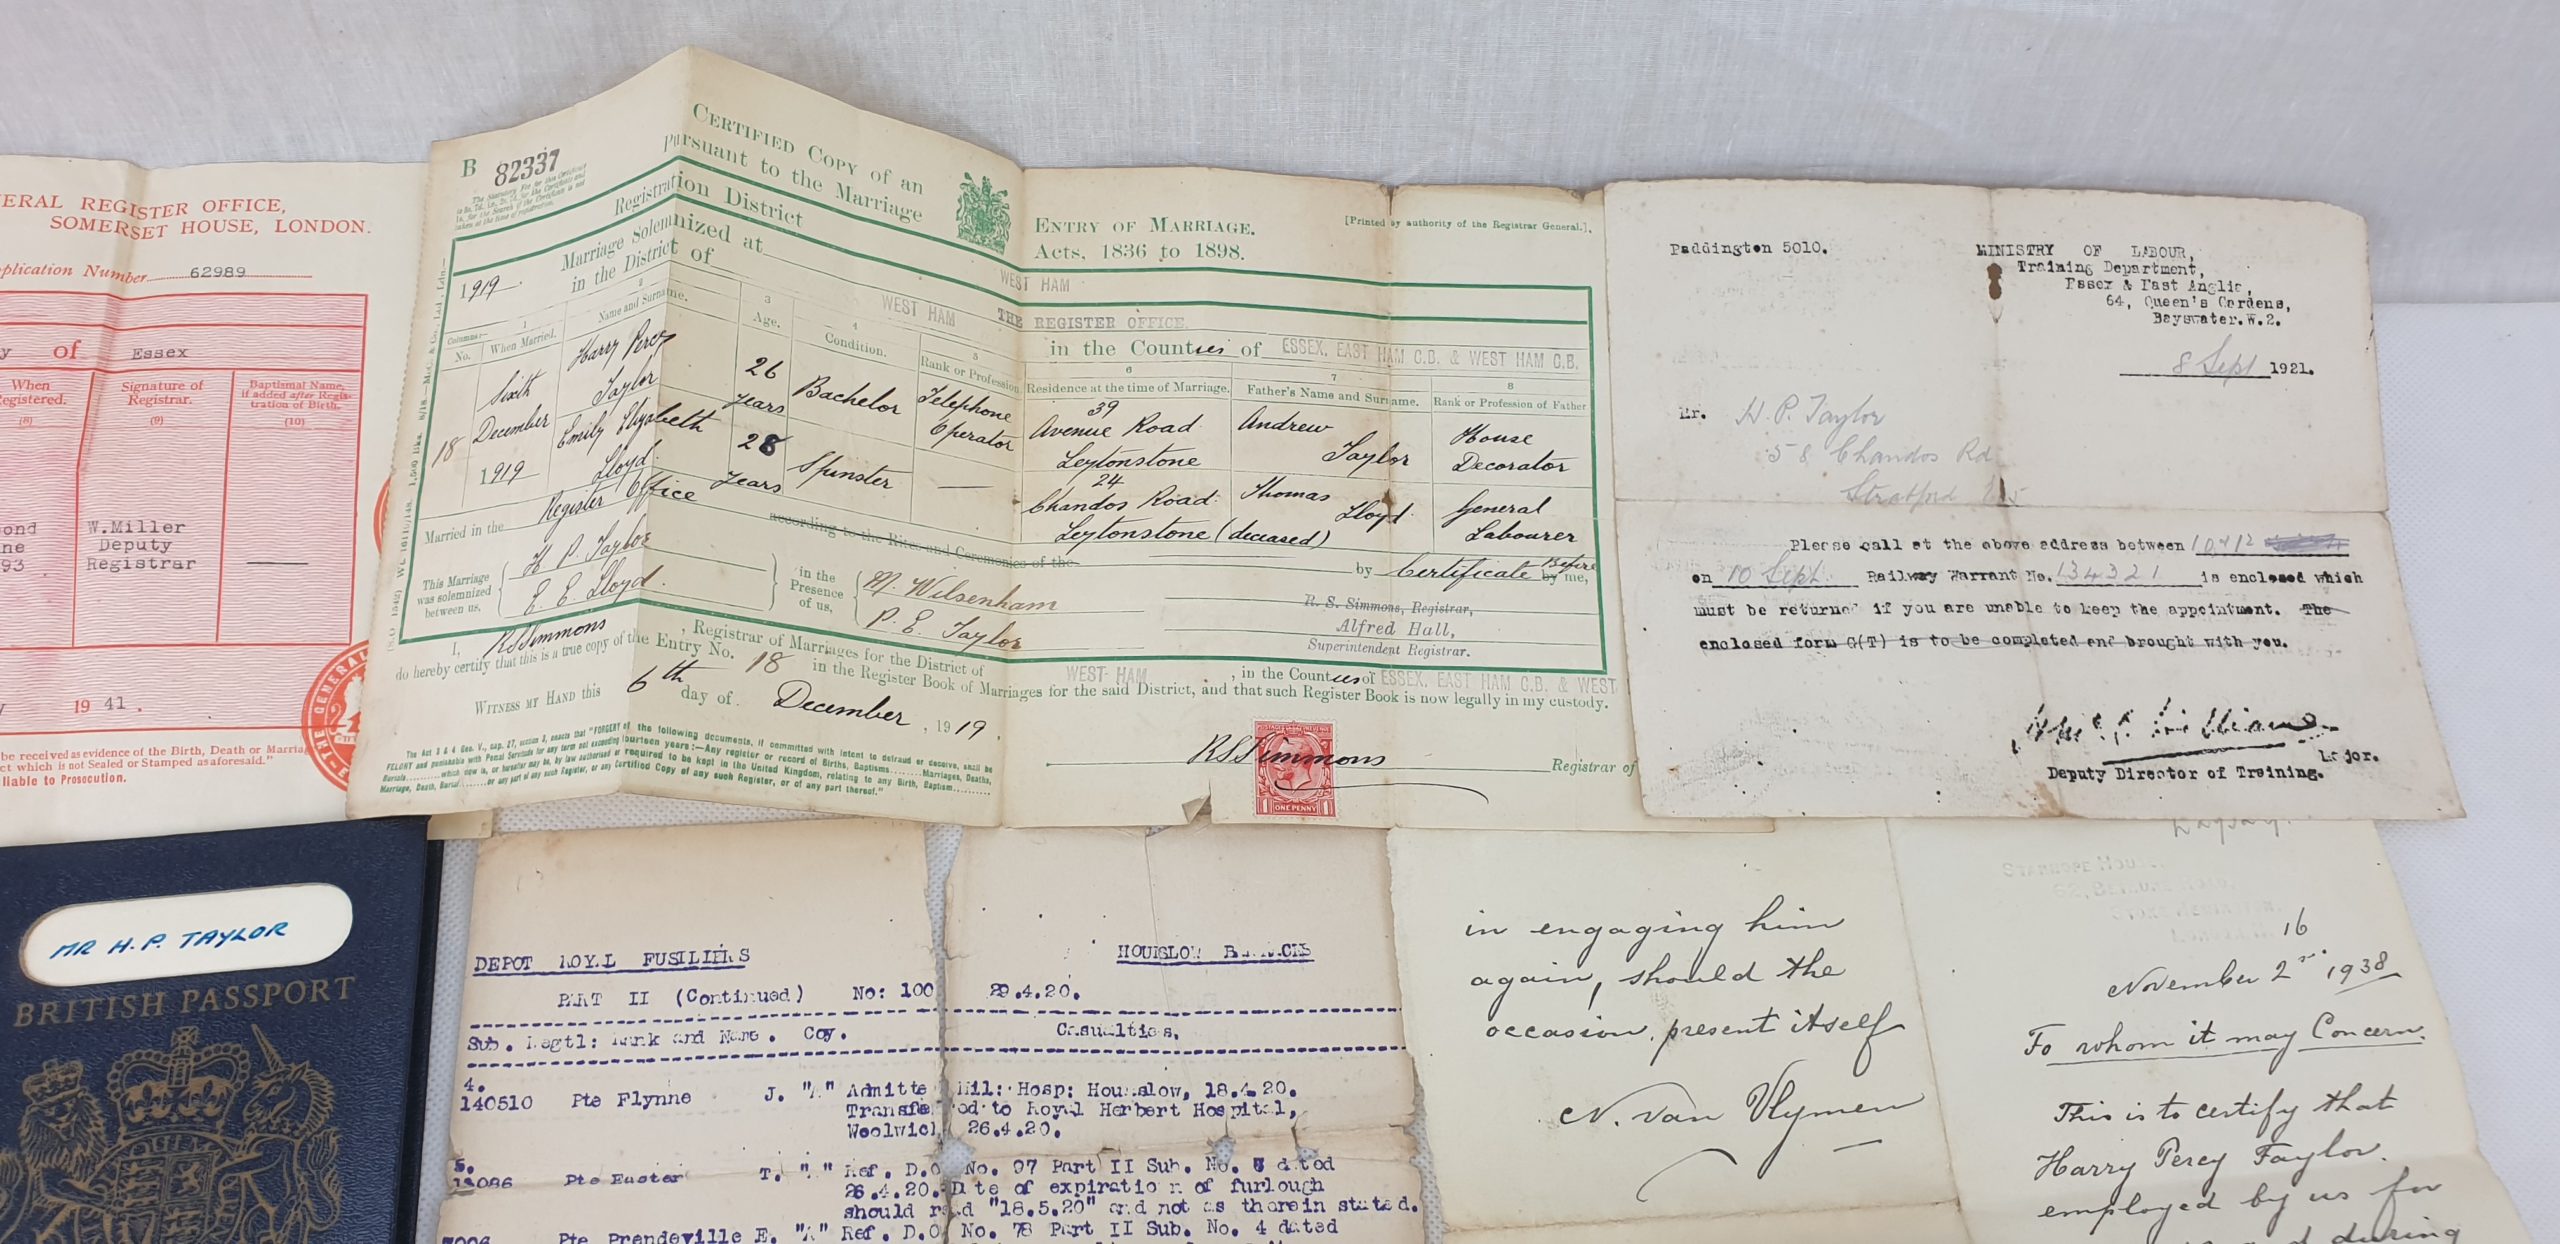 ERAL REGISTER OFFICE,
SOMERSET HOUSE, LONDON.
plication Number 62989
y of Essex
When
egistered.
Signature of
Registrar.
Baptismal Name,
if added after Regis-
tration of Birth.
(8) (9) (10)
ond
ne
93
W.Miller
Deputy
Registrar
1941.
be received as evidence of the Birth, Death or Marria
ct which is not Sealed or Stamped as aforesaid."
llable to Prosecution.
B 82337
CERTIFIED COPY OF AN
Pursuant to the Marriage
ENTRY OF MARRIAGE.
Acts, 1836 to 1898.
[Printed by authority of the Registrar General.].
Registration District
WEST HAM
1919. Marriage Solemnized at
THE REGISTER OFFICE.
in the District of WEST HAM in the Counties of ESSEX, EAST HAM C.B. & WEST HAM C.B.
Columns:— 1 2 3 4 5 6 7 8
No. When Married. Name and Surname. Age. Condition. Rank or Profession Residence at the time of Marriage. Father's Name and Surname. Rank or Profession of Father
18 Sixth December 1919
Harry Percy Taylor 26 years Bachelor Telephone Operator 39 Avenue Road Leytonstone Andrew Taylor House Decorator
Emily Elizabeth Lloyd 28 years Spinster — 24 Chandos Road Leytonstone Thomas Lloyd (deceased) General Labourer
Married in the Register Office according to the Rites and Ceremonies of the by Certificate Before by me,
This Marriage
was solemnized
between us,
H. P. Taylor
E. E. Lloyd.
in the
Presence
of us,
M. Wilsenham
P. E. Taylor
R. S. Simmons, Registrar,
Alfred Hall,
Superintendent Registrar.
I, RSSimmons, Registrar of Marriages for the District of WEST HAM, in the Counties of ESSEX, EAST HAM C.B. & WEST
do hereby certify that this is a true copy of the Entry No. 18 in the Register Book of Marriages for the said District, and that such Register Book is now legally in my custody.
WITNESS MY HAND this 6th day of December, 1919.
RSSimmons Registrar of
ONE PENNY
The Act 3 & 4 Geo. V., cap. 27, section 3, enacts that "FORGERY of the following documents, if committed with intent to defraud or deceive, shall be
FELONY and punishable with Penal Servitude for any term not exceeding fourteen years:—Any register or record of Births, Baptisms........Marriages, Deaths,
Burials..........which now is, or hereafter may be, by law authorised or required to be kept in the United Kingdom, relating to any Birth, Baptism..........
Marriage, Death, Burial........or any part of any such Register, or any Certified Copy of any such Register, or of any part thereof."
Paddington 5010.
MINISTRY OF LABOUR,
Training Department,
Essex & East Anglia,
64, Queen's Gardens,
Bayswater.W.2.
8 Sept 1921.
Mr. H. P. Taylor
58 Chandos Rd
Stratford E15
Please call at the above address between 10 & 12
on 10 Sept. Railway Warrant No. 134321 is enclosed which
must be returned if you are unable to keep the appointment. The
enclosed form G(T) is to be completed and brought with you.
Major.
Deputy Director of Training.
MR H. P. TAYLOR
BRITISH PASSPORT
DEPOT ROYAL FUSILIERS HOUNSLOW BARRACKS
PART II (Continued) No: 100 29.4.20.
Sub. Regtl: Rank and Name. Coy. Casualties.
4.
140510 Pte Flynne J. "A" Admitte Mil: Hosp: Hounslow, 18.4.20.
Transfe ed to Royal Herbert Hospital,
Woolwich 26.4.20.
5.
Pte Easter T. " " Ref. D.O No. 97 Part II Sub. No. dated
26.4.20. Date of expiration of furlough
should read "18.5.20" and not as therein stated.
Pte Prendeville E. "A" Ref. D.O No. 78 Part II Sub. No. 4 dated
in engaging him
again, should the
occasion present itself
N. van Vlymen
STANHOPE HOUSE,
16
November 2nd 1938
To whom it may Concern.
This is to certify that
Harry Percy Taylor.
employed by us for
during